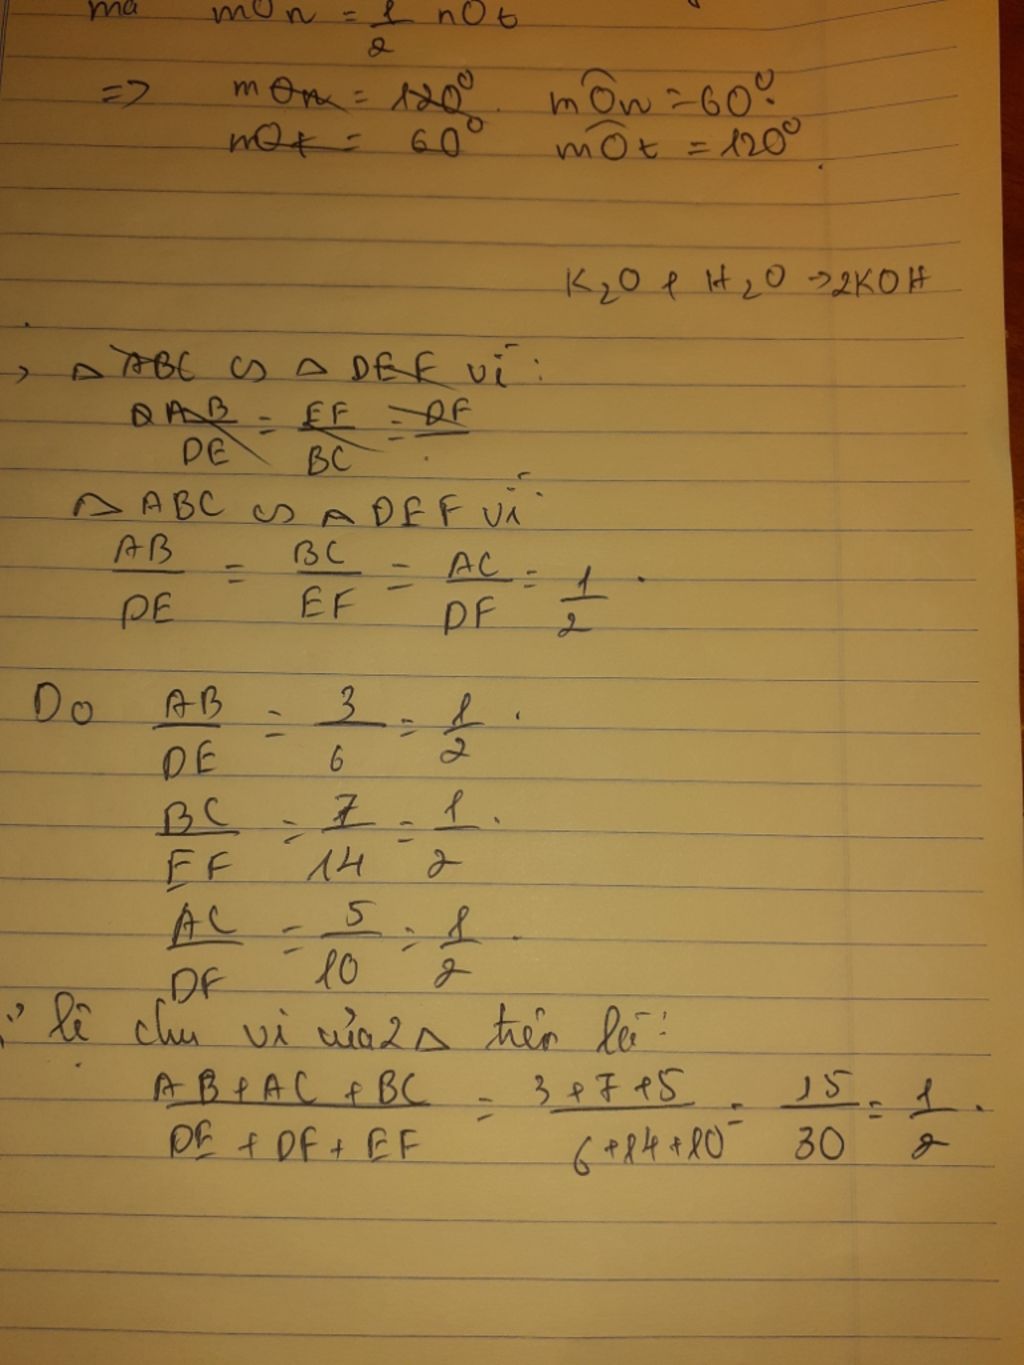 mà mOn = 1/2 nOt
=> mOn = 120° mOn = 60°.
mOt = 60° mOt = 120°.
K₂O + H₂O → 2KOH
, △ ABC ∽ △ DEF vì:
AB/DE = EF/BC = DF
△ ABC ∽ △ DEF vì
AB/DE = BC/EF = AC/DF = 1/2.
Do AB/DE = 3/6 = 1/2.
BC/EF = 7/14 = 1/2.
AC/DF = 5/10 = 1/2.
lê chu vi của 2 △ trên là:
AB + AC + BC/DE + DF + EF = 3 + 7 + 5/6 + 14 + 10 = 15/30 = 1/2.